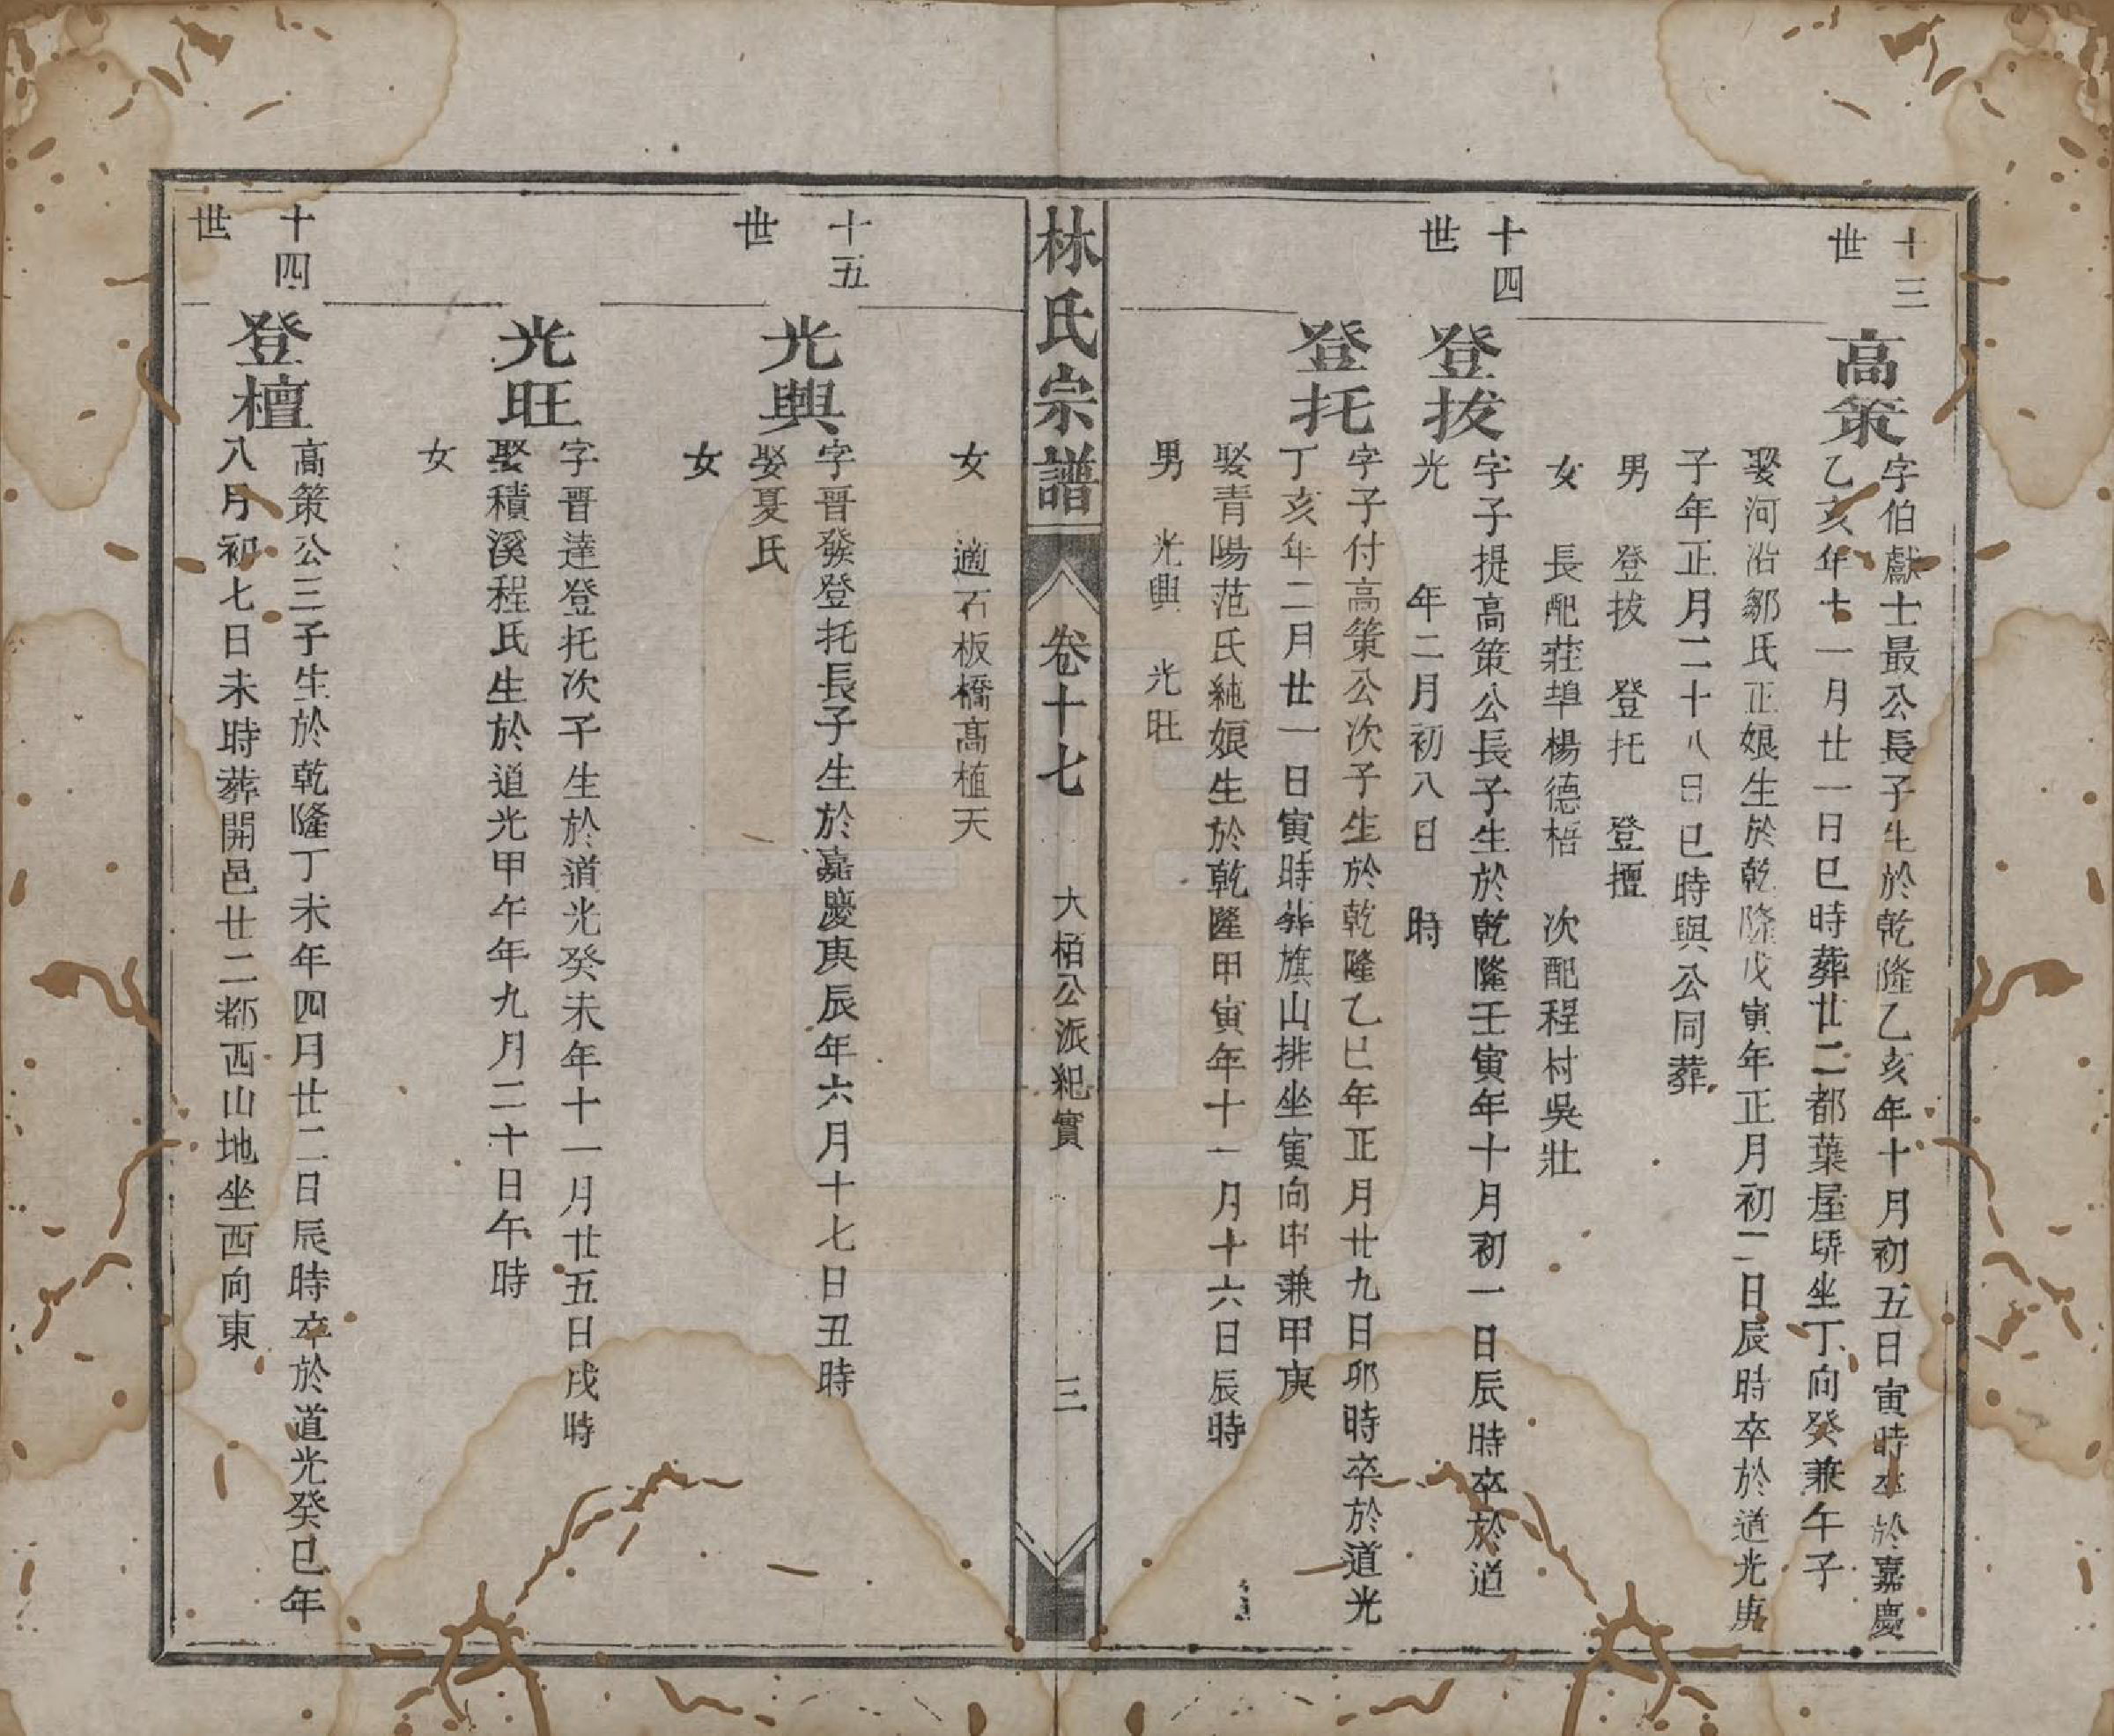 十三
世
高策
字伯獻士最公長子生於乾隆乙亥年十月初五日寅時卒於嘉慶
乙亥年十一月廿一日巳時葬廿二都葉屋塝坐丁向癸兼午子
娶河沿鄒氏正娘生於乾隆戊寅年正月初二日辰時卒於道光庚
子年正月二十八日巳時與公同葬
男 登拔 登托 登擅
女 長配莊埠楊德梧 次配程村吳壯
十四
世
登拔
字子提高策公長子生於乾隆壬寅年十月初一日辰時卒於道
光 年二月初八日 時
登托
字子付高策公次子生於乾隆乙巳年正月廿九日卯時卒於道光
丁亥年二月廿一日寅時葬旗山排坐寅向申兼甲庚
娶青陽范氏純娘生於乾隆甲寅年十一月十六日辰時
男 光興 光旺
林氏宗譜 卷十七 大栢公派紀實 三
女 適石板橋高植天
十五
世
光興
字晋發登托長子生於嘉慶庚辰年六月十七日丑時
娶夏氏
女
光旺
字晋達登托次子生於道光癸未年十一月廿五日戌時
娶積溪程氏生於道光甲午年九月二十日午時
女
十四
世
登檀
高策公三子生於乾隆丁未年四月廿二日辰時卒於道光癸巳年
八月初七日未時葬開邑廿二都西山地坐西向東